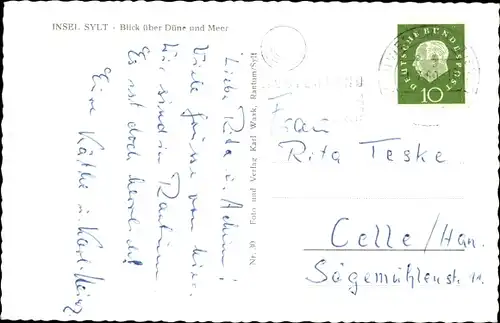 INSEL SYLT - Blick über Düne und Meer
Liebe Rita u. Achim!
Viele Grüsse von hier.
Wir sind in Rantum.
Es ist doch herrlich!
Eure Käthe u. Karl-Heinz
Nr. 39 Foto und Verlag Karl Wank, Rantum/Sylt
DEUTSCHE BUNDESPOST
10
Frau
Rita Teske
Celle/Han.
Sägemühlenstr.